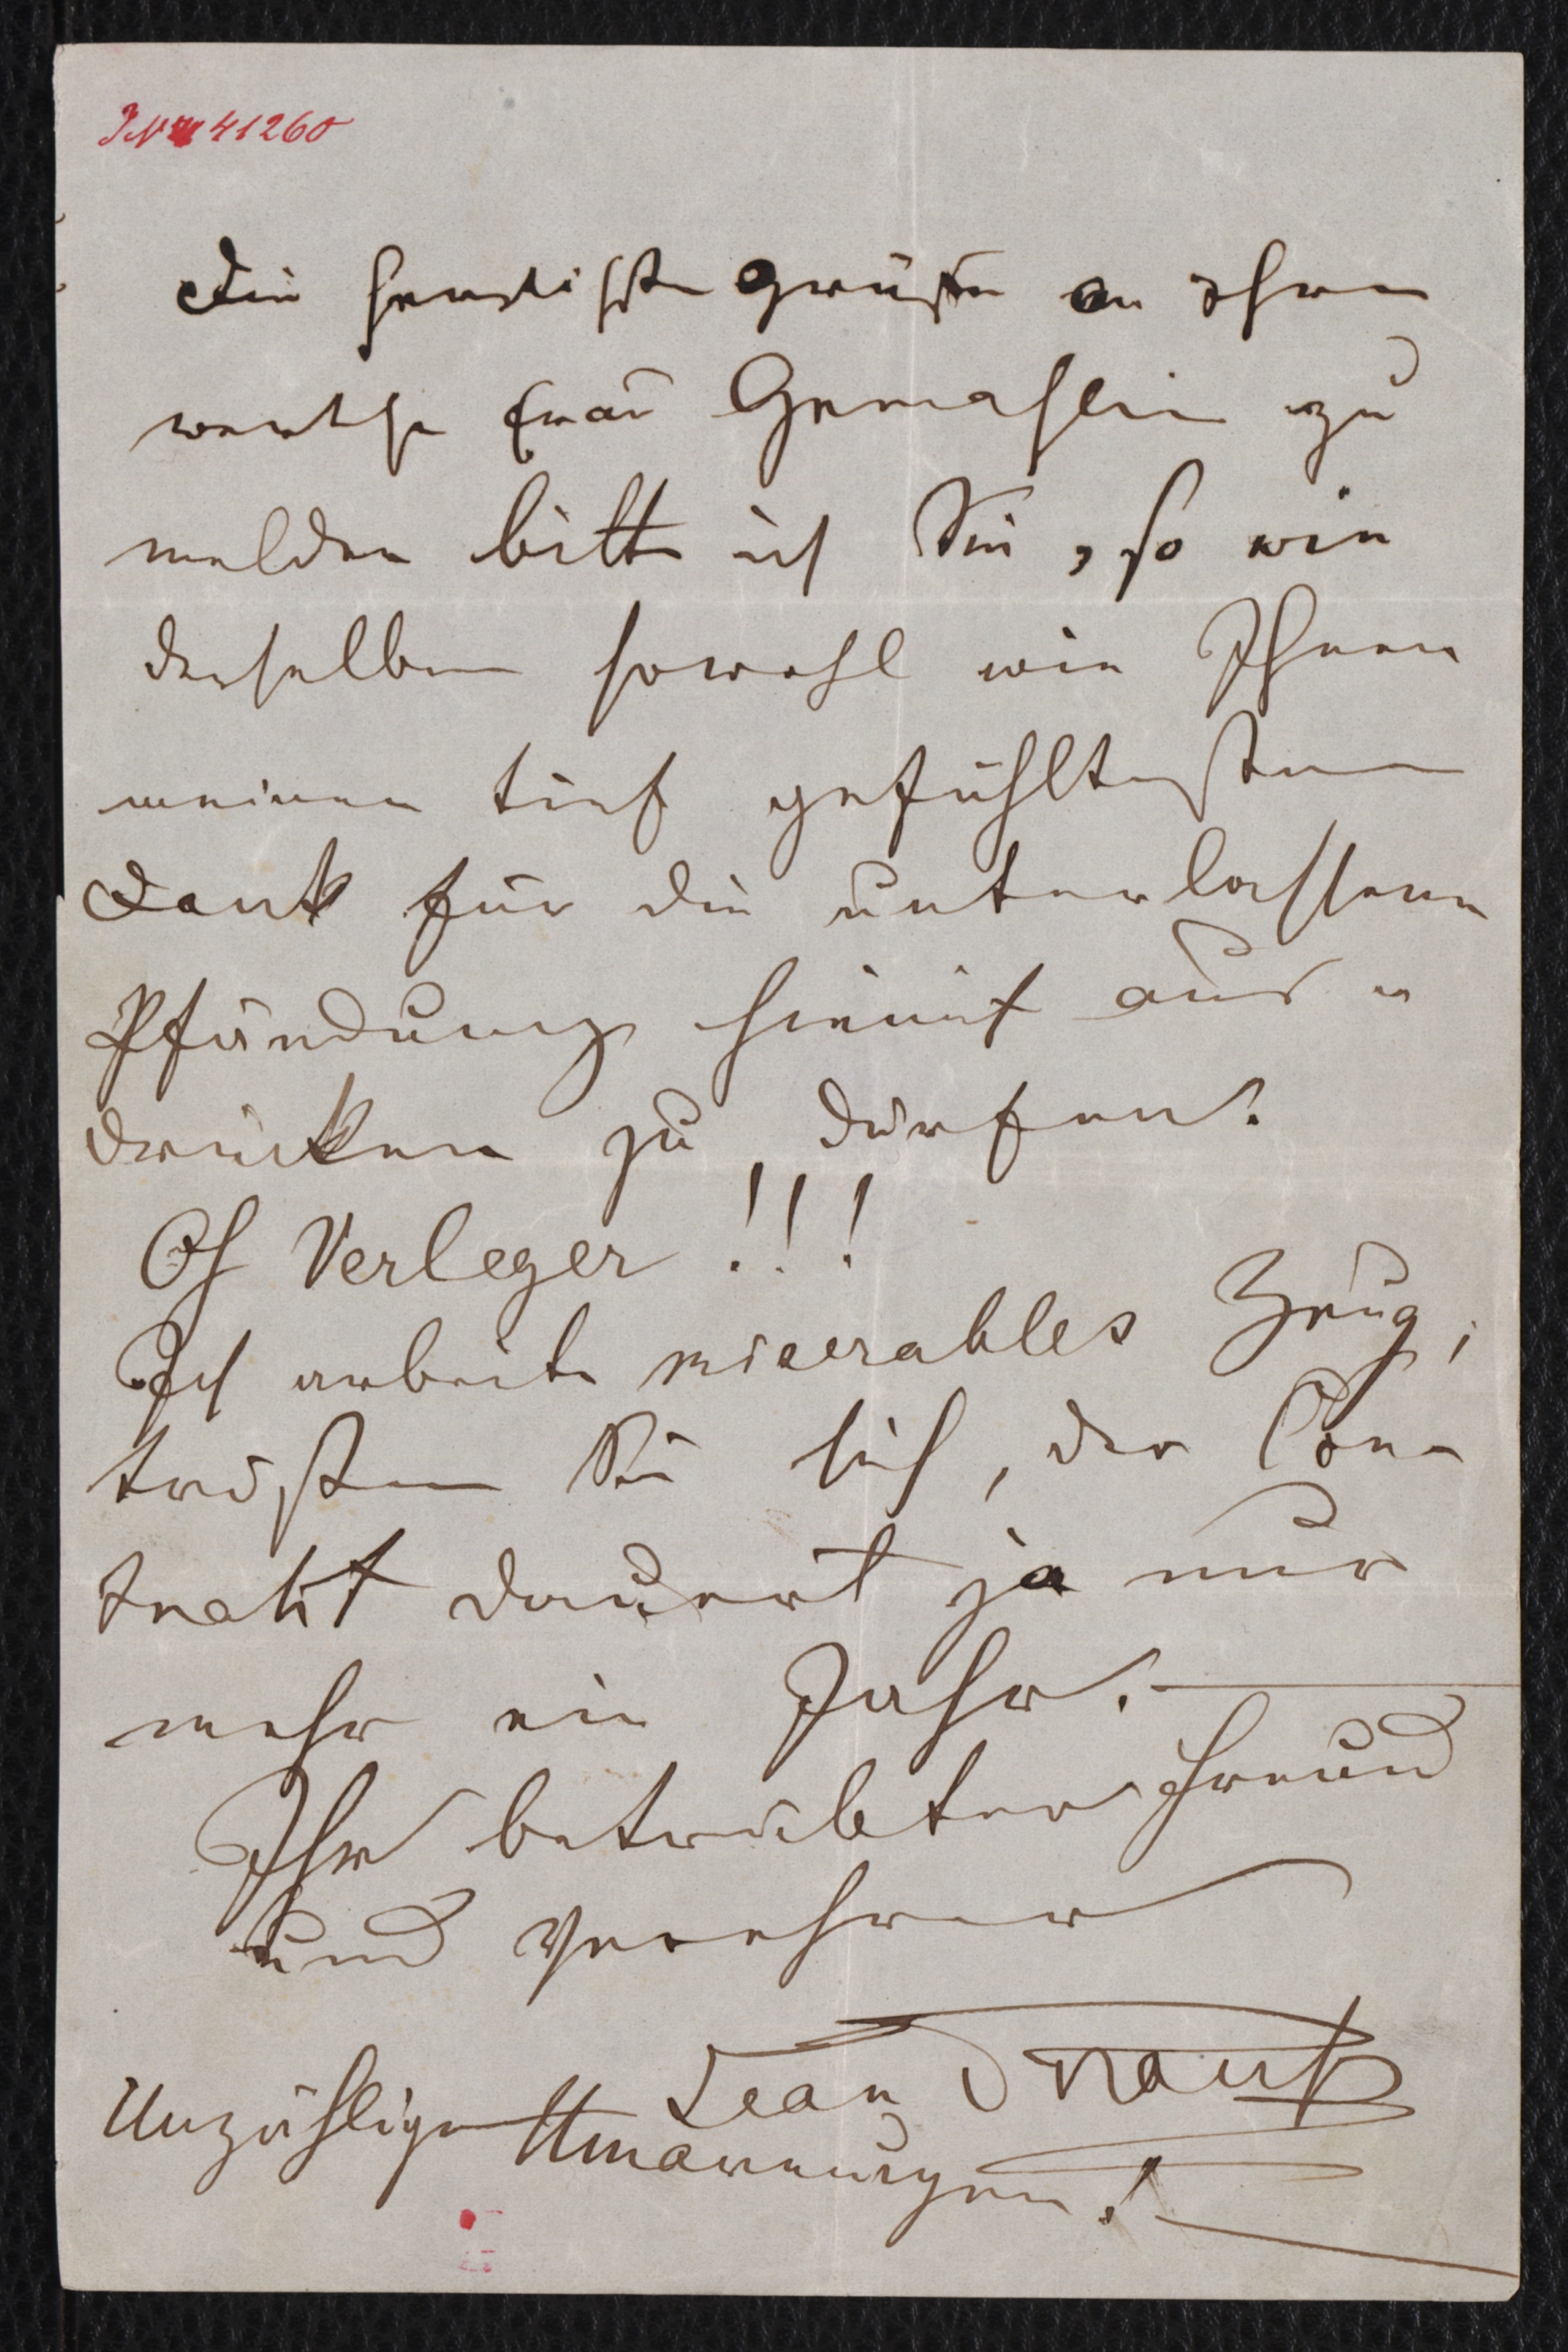 INr 41260
Die herzlichste Grüße an Ihre
werthe Frau Gemahlin zu
melden bitte ich Sie, so wie
derselben sowohl wie Ihnen
meinen tief gefühltesten
Dank für die unterlassene
Pfändung hiemit aus-
drücken zu dürfen.
Oh Verleger!!!
Ich arbeite miserables Zeug;
trösten Sie sich, der Con-
trakt dauert ja nur
mehr ein Jahr.
Ihr betrübter Freund
und Verehrer
Jean Strauß
Unzählige Umarmungen!